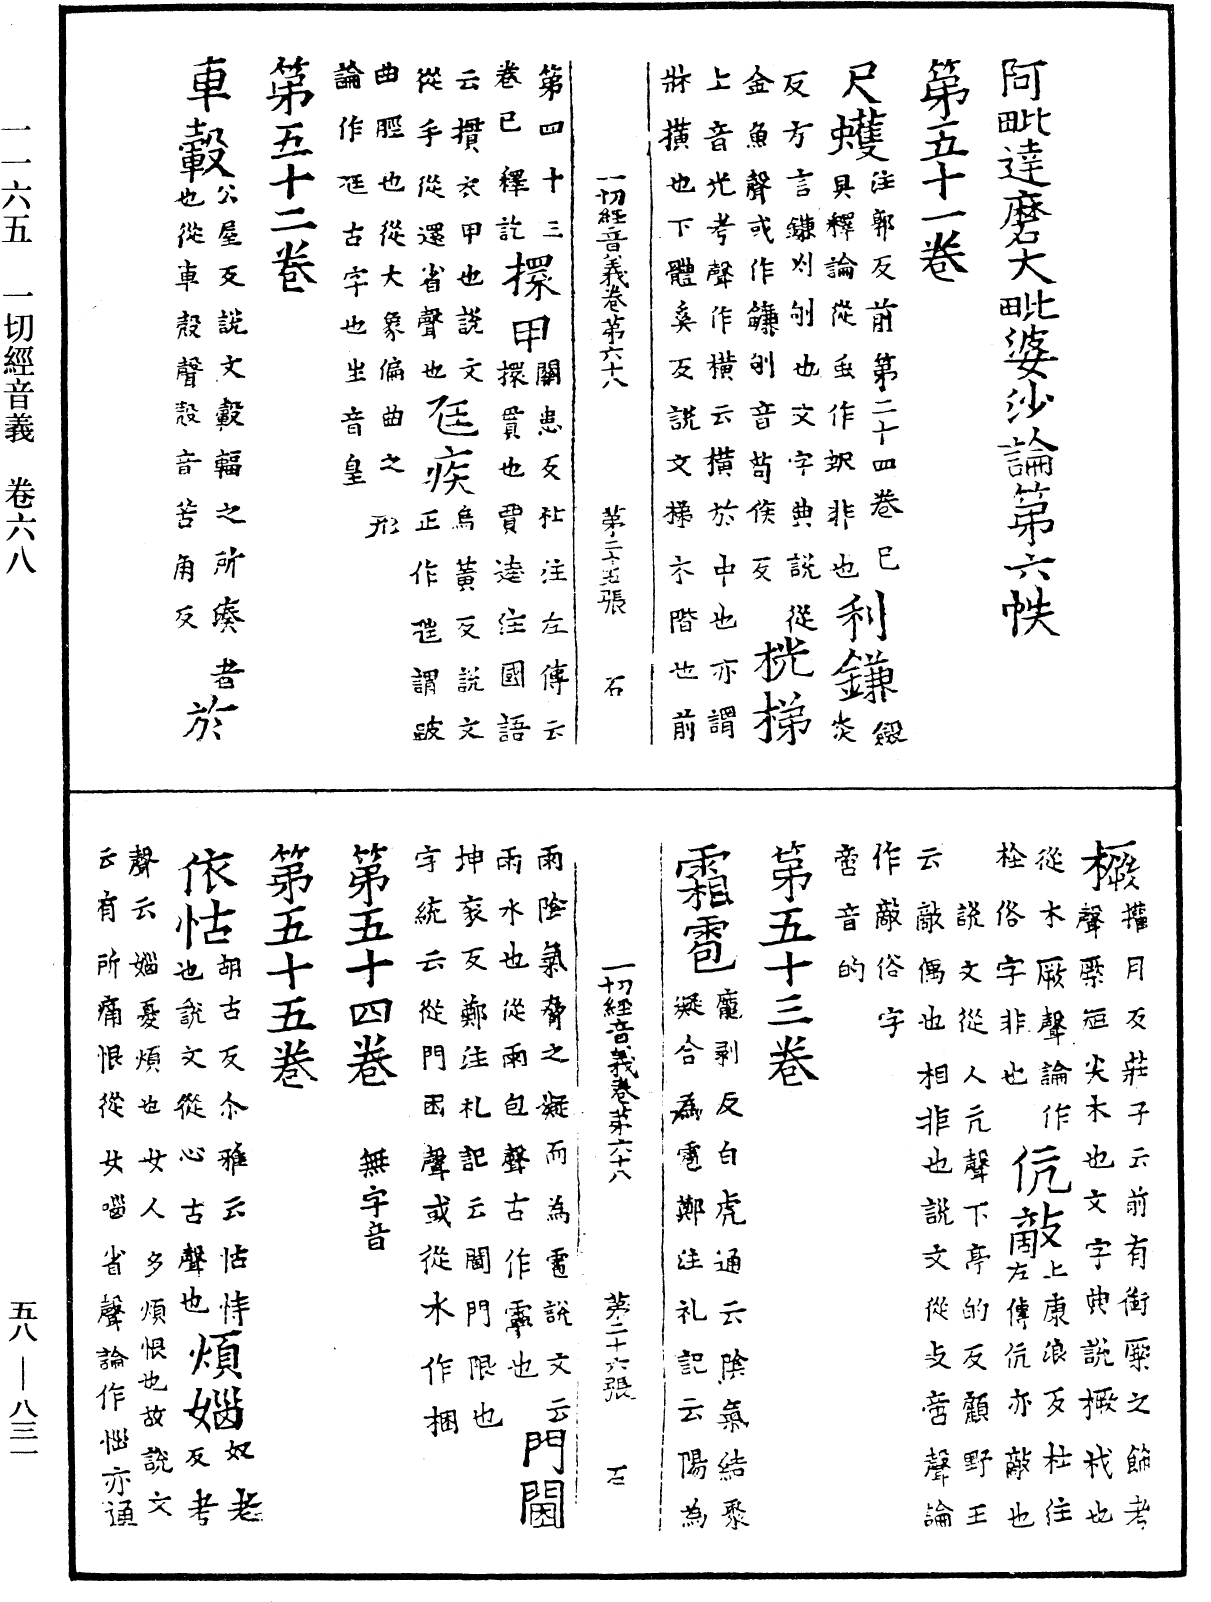 阿毗達磨大毗婆沙論第六帙
第五十一卷
尺蠖注郭反前第二十四卷已
具釋論從虫作蚇非也利鎌斂炎
反方言鎌刈刎也文字典說從
金魚聲或作鐮刎音苟侯反桄梯
上音光考聲作橫云橫於中也亦謂
牀橫也下體奚反說文梯木階也前
一切經音義卷第六十八 第二十五張 石
第四十三
卷已釋訖擐甲關患反杜注左傳云
擐貫也賈逵注國語
云擐衣甲也說文
從手從還省聲也尫疾烏黃反說文
正作尪謂跛
曲脛也從大象偏曲之形
論作尫古字也㞷音皇
第五十二卷
車轂公屋反說文轂輻之所湊者於
也從車㱿聲㱿音苦角反
橛權月反莊子云前有銜橜之飾考
聲橜短尖木也文字典說橛杙也
從木厥聲論作
栓俗字非也伉敵上康浪反杜注
左傳伉亦敵也
說文從人亢聲下亭的反顧野王
云敵偶也相非也說文從攴啻聲論
作敵俗字
啻音的
第五十三卷
霜雹龐剥反白虎通云陰氣結聚
凝合為雹鄭注礼記云陽為
一切經音義卷第六十八 第二十六張 石
雨陰氣脅之凝而為雹說文云
雨水也從雨包聲古作靁也門閫
坤衮反鄭注礼記云閫門限也
字統云從門困聲或從木作梱
第五十四卷 無字音
第五十五卷
依怙胡古反尒雅云怙恃
也說文從心古聲也煩㛴奴老
反考
聲云㛴憂煩也女人多煩恨也故說文
云有所痛恨從女㛴省聲論作惱亦通
一一六五 一切經音義 卷六八
五八—八三一